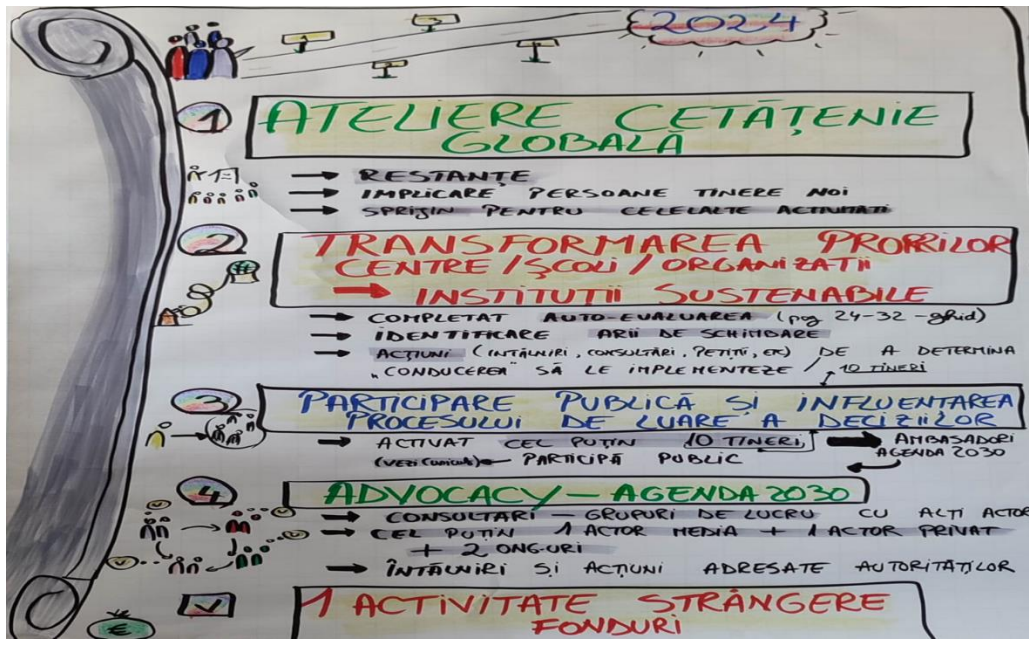 2024
1 ATELIERE CETĂȚENIE
GLOBALĂ
→ RESTANȚE
→ IMPLICARE PERSOANE TINERE NOI
→ SPRIJIN PENTRU CELELALTE ACTIVITĂȚI
2 TRANSFORMAREA PROPRIILOR
CENTRE/ȘCOLI/ORGANIZAȚII
→ INSTITUȚII SUSTENABILE
→ COMPLETAT AUTO-EVALUAREA (pag 24-32-ghid)
→ IDENTIFICARE ARII DE SCHIMBARE
→ ACȚIUNI (INTÂLNIRI, CONSULTĂRI, PETIȚII, ETC) DE A DETERMINA
"CONDUCEREA" SĂ LE IMPLEMENTEZE / 10 TINERI
3 PARTICIPARE PUBLICĂ ȘI INFLUENTAREA
PROCESULUI DE LUARE A DECIZIILOR
→ ACTIVAT CEL PUȚIN 10 TINERI → AMBASADORI
AGENDA 2030
PARTICIPĂ PUBLIC
4 ADVOCACY - AGENDA 2030
→ CONSULTĂRI - GRUPURI DE LUCRU CU ALȚI ACTOR
→ CEL PUȚIN 1 ACTOR MEDIA + 1 ACTOR PRIVAT
+ 2 ONG-URI
→ ÎNTÂLNIRI ȘI ACȚIUNI ADRESATE AUTORITĂȚILOR
1 ACTIVITATE STRÂNGERE
FONDURI
€